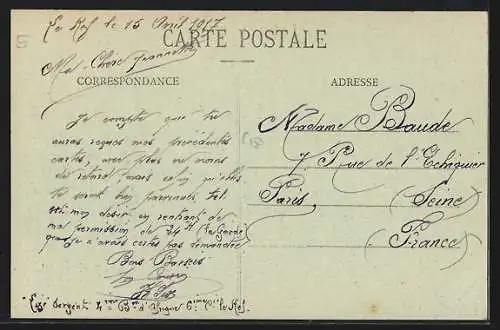 Le Kef le 15 Avril 1917
CARTE POSTALE
Ma Chère Jeannette
CORRESPONDANCE
ADRESSE
Je compte que tu
auras reçues mes précédentes
cartes, avec plus ou moins
de retard, mais enfin qu'elles
te soient bien parvenues, tel
est mon désir, en rentrant de
ma permission de 24 h
que je n'avais certes pas demandée
Bons Baisers
Madame Baude
7 Rue de l'Echiquier
Paris (Seine)
(France)
Sergent 4 6 Le Kef